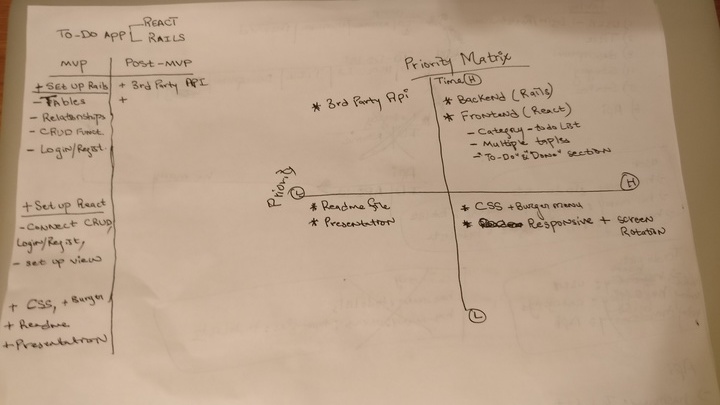 To-Do App
React
Rails
MVP
Post-MVP
+ Set up Rails
- Tables
- Relationships
- CRUD Funct.
- Login/Regist.
+ 3rd Party API
+
+ Set up React
- Connect CRUD,
Login/Regist,
- set up view
+ CSS, + Burger
+ Readme
+ Presentation
Priority Matrix
Time (H)
* 3rd Party Api
* Backend (Rails)
* Frontend (React)
- Category - todo List
- Multiple tables
- "To-Do" & "Done" section
Priority
(L)
(H)
* Readme file
* Presentation
* CSS + Burger menu
* Responsive + screen
Rotation
(L)